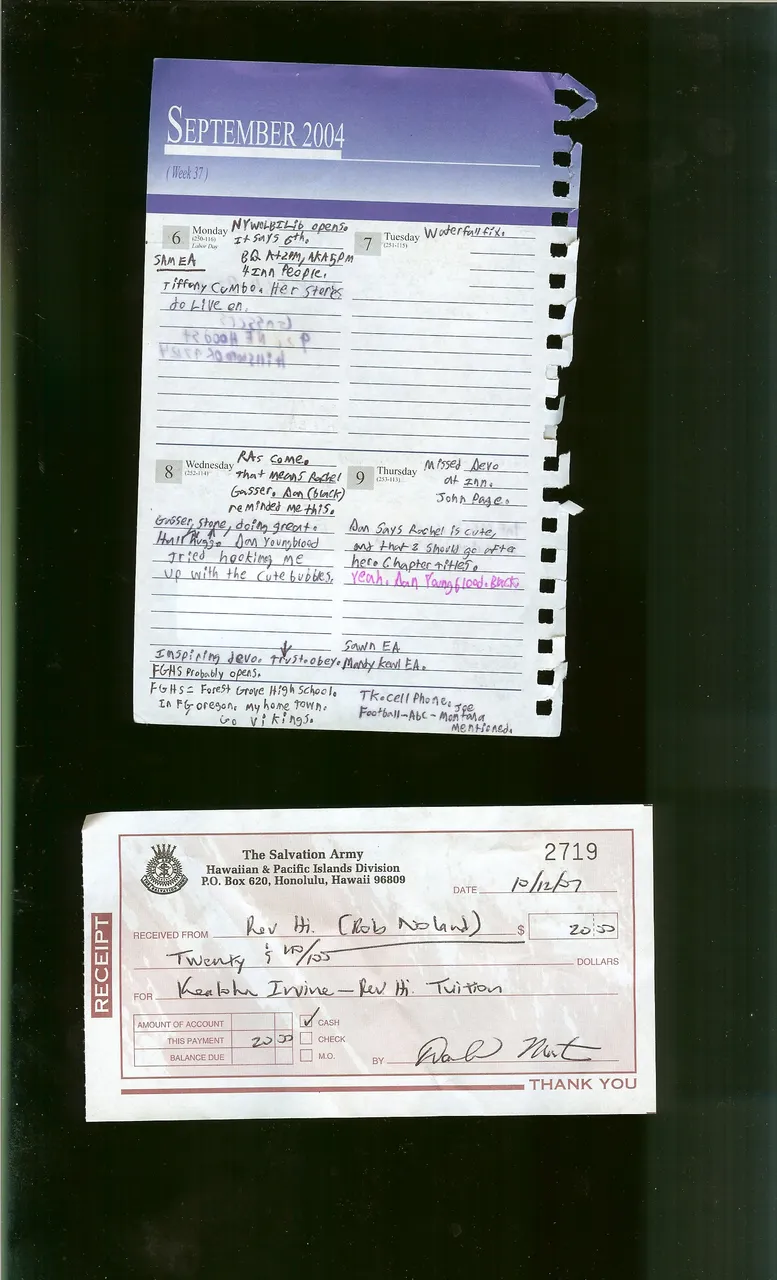 SEPTEMBER 2004
(Week 37)
6 Monday
(250-116)
Labor Day
NYWOLBILib opens.
It says 6th.
BQ At 2PM, AKA 5PM
4 Inn People.
SAM EA
Tiffany Cumbo. Her stores
do Live on.
7 Tuesday
(251-115)
Waterfall fix.
8 Wednesday
(252-114)
RAs come.
That means Rachel
Gasser. Dan (black)
reminded me this.
Gasser, stone, doing great.
Hall Huggs. Dan Youngblood
Tried hooking me
up with the cute bubbles.
Inspiring devo. Trust. obey.
FGHS Probably opens.
FGHS = Forest Grove High School.
In FG oregon. my home town.
Go Vikings.
9 Thursday
(253-113)
Missed Devo
at Inn.
John Page.
Dan Says Rachel is cute,
and that I should go after
her. Chapter titles.
Yeah, Dan Youngblood. Black
Sawn EA
Mandy Kawl EA.
TK. cell Phone. Joe
Football-ABC-Montana
mentioned.
The Salvation Army
Hawaiian & Pacific Islands Division
P.O. Box 620, Honolulu, Hawaii 96809
2719
DATE 10/12/07
RECEIPT
RECEIVED FROM Rev Hi. (Rob Noland) $ 20 00
Twenty & no/100 DOLLARS
FOR Kealohn Irvine - Rev Hi. Tuition
AMOUNT OF ACCOUNT
THIS PAYMENT 20 00
BALANCE DUE
✓ CASH
CHECK
M.O.
BY
THANK YOU